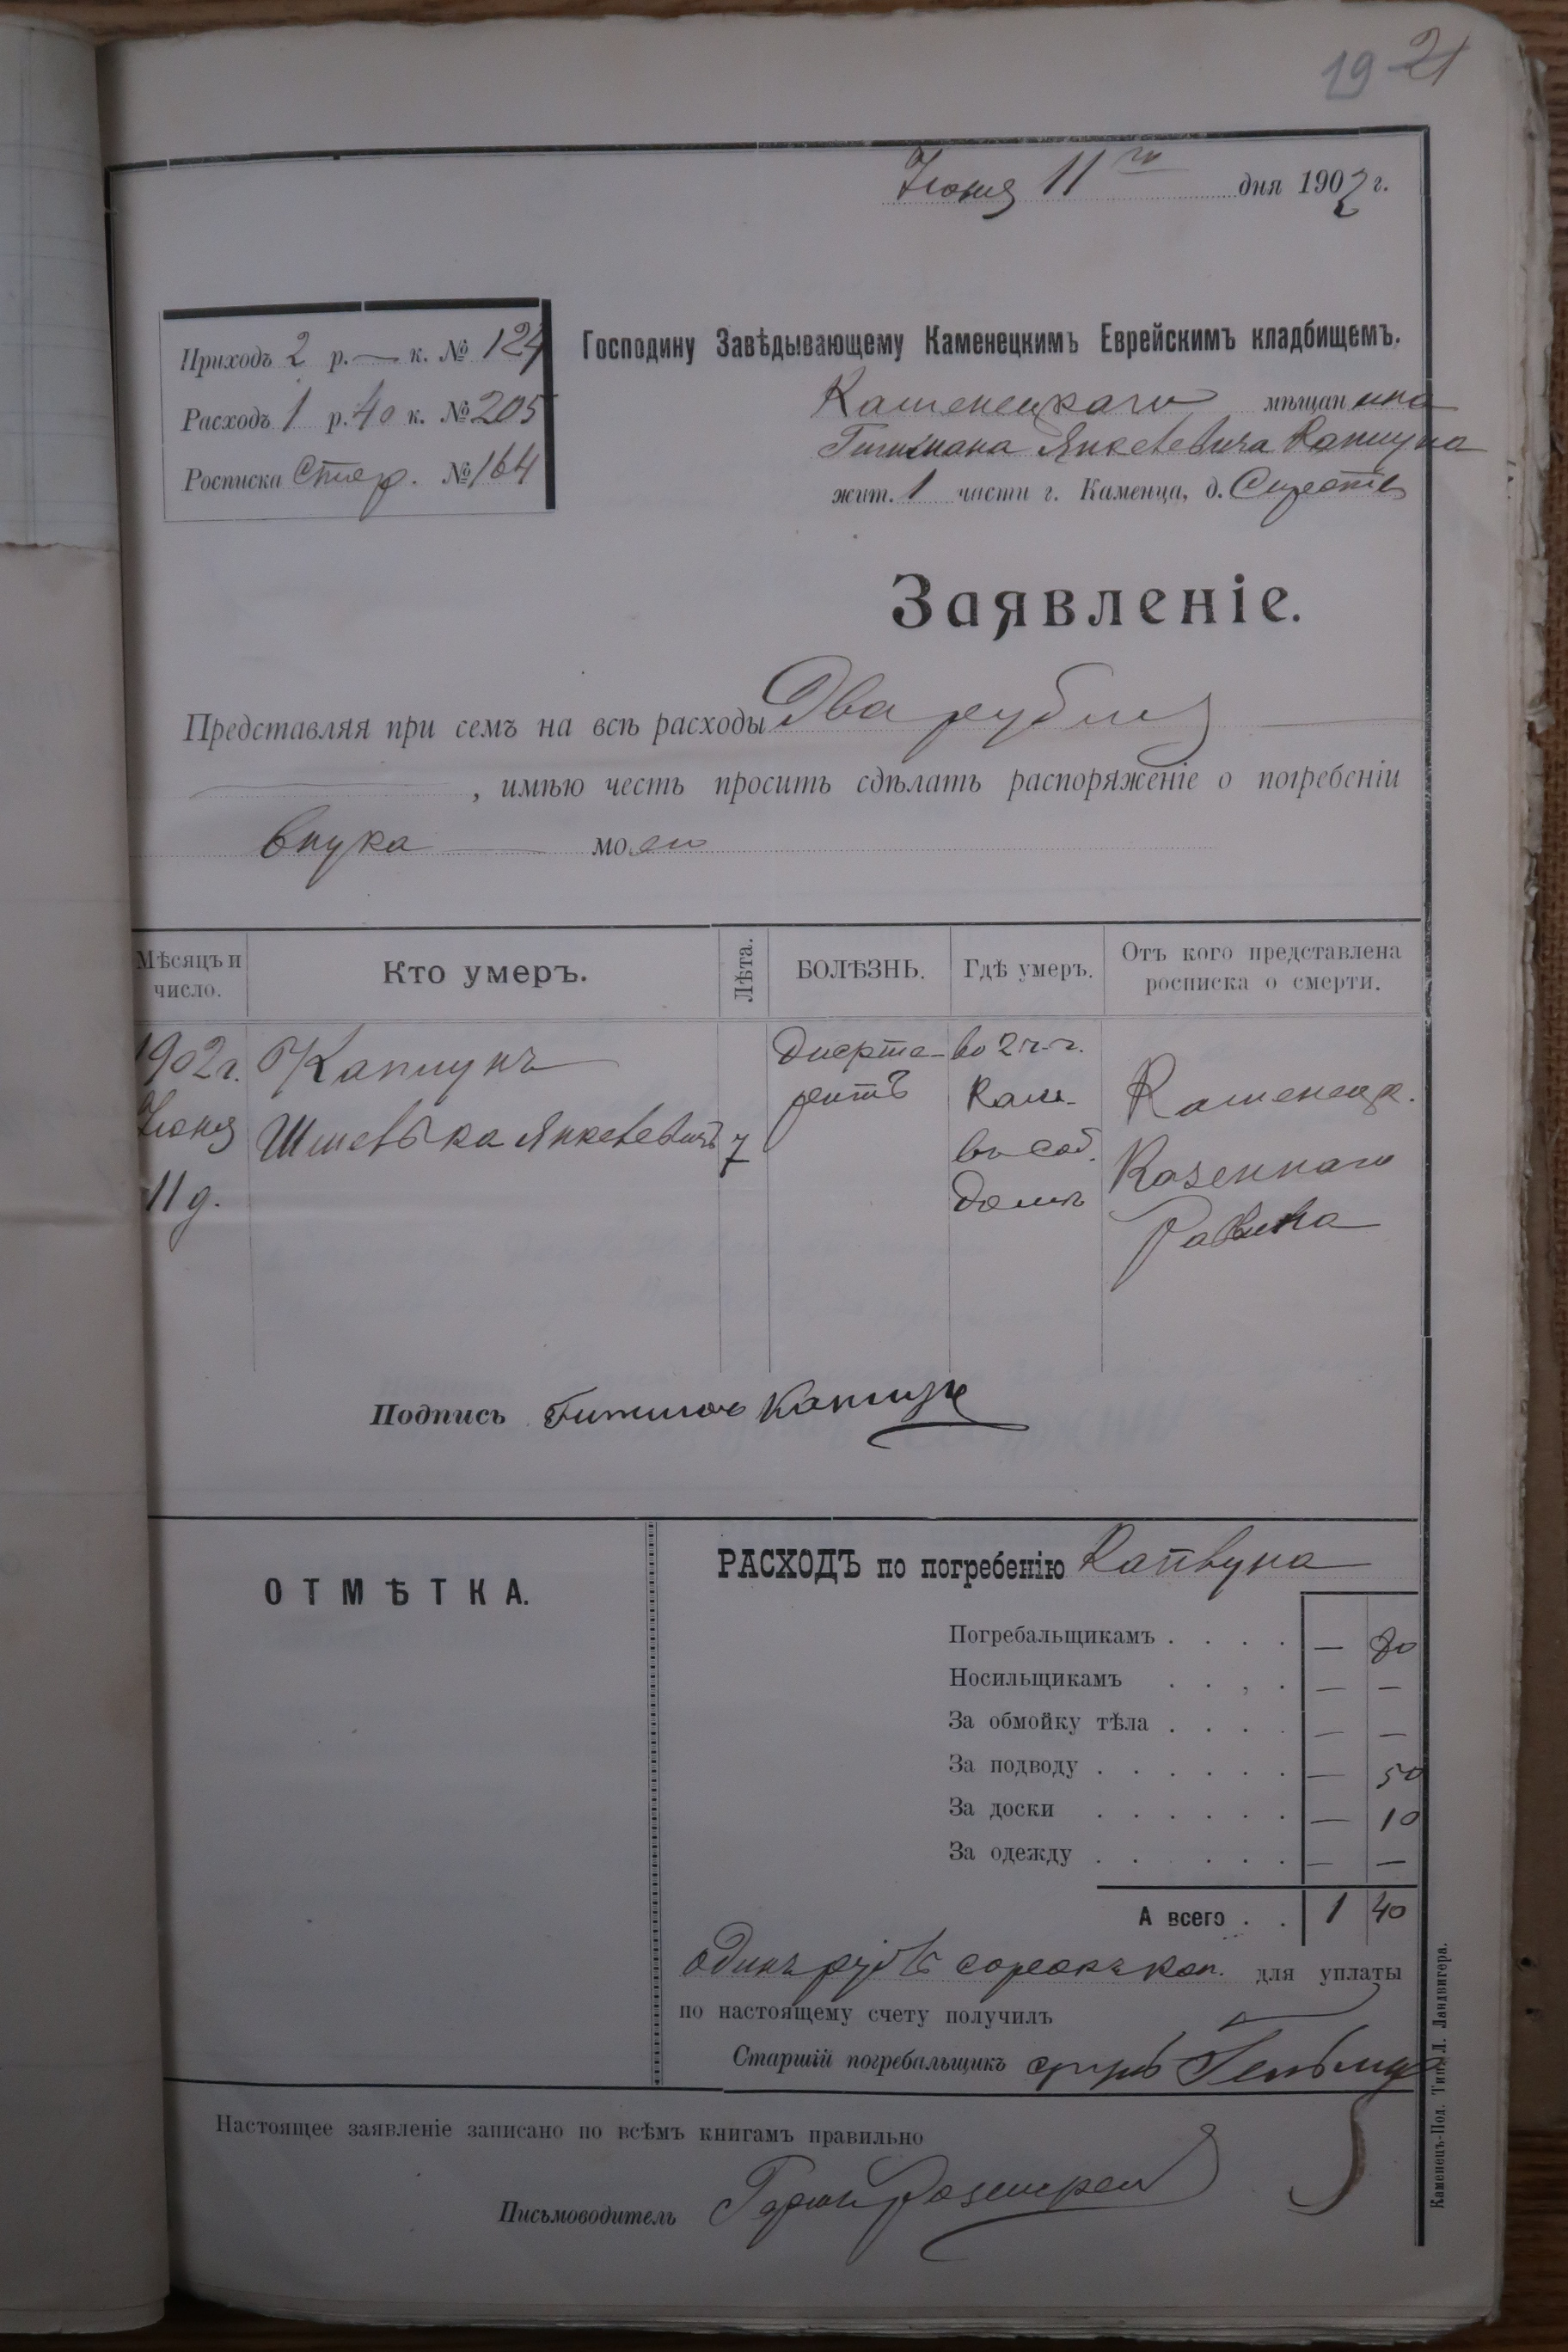 19 21
Іюня 11го дня 1902 г.
Приходъ 2 р. — к. № 124
Расходъ 1 р. 40 к. № 205
Росписка Стер. № 164
Господину Завѣдывающему Каменецкимъ Еврейскимъ кладбищемъ.
Каменецкаго мѣщанина
Янкелевича Каплуна
жит. 1 части г. Каменца, д.
Заявленіе.
Представляя при семъ на всѣ расходы Два рубля
, имѣю честь просить сдѣлать распоряженіе о погребеніи
внука моего
Мѣсяцъ и число.
Кто умеръ.
Лѣта.
БОЛѢЗНЬ.
Гдѣ умеръ.
Отъ кого представлена росписка о смерти.
1902 г.
Іюня
11 д.
Каплунъ
Янкелевичъ
7
во 2 ч. г.
Кам.
въ соб.
домѣ
Каменецк.
Казеннаго
Равина
Подпись
ОТМѢТКА.
РАСХОДЪ по погребенію
Погребальщикамъ . . . . — 80
Носильщикамъ . . , . — —
За обмойку тѣла . . . . — —
За подводу . . . . . . — 50
За доски . . . . . . — 10
За одежду . . . . . . — —
А всего . . 1 40
Одинъ руб. сорокъ коп. для уплаты
по настоящему счету получилъ
Старшій погребальщикъ
Настоящее заявленіе записано по всѣмъ книгамъ правильно
Письмоводитель
Каменецъ-Под. Тип. Л. Ландвигера.